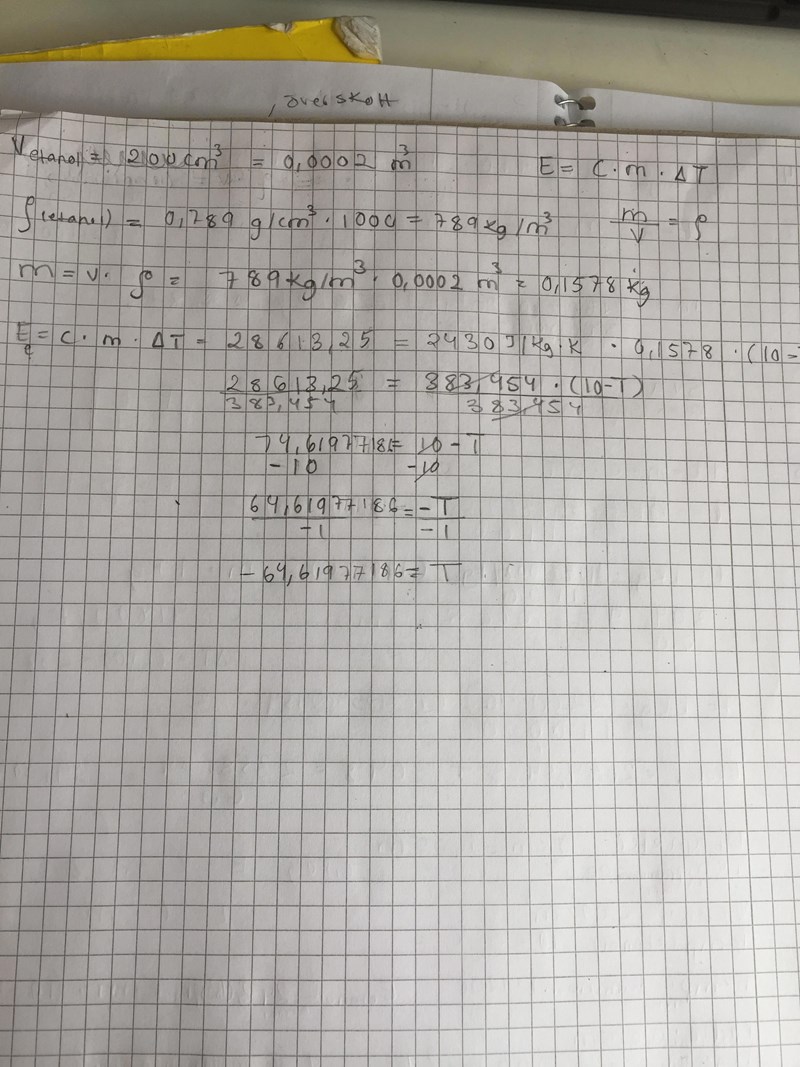 , överskott
V etanol = 200 cm³ = 0,0002 m³ E = C · m · ΔT
ρ(etanol) = 0,789 g/cm³ · 1000 = 789 kg/m³ m/V = ρ
m = v · ρ = 789 kg/m³ · 0,0002 m³ = 0,1578 kg
E = C · m · ΔT = 28613,25 = 2430 J/kg·K · 0,1578 · (10-T
28613,25 = 383,454 · (10-T)
383,454 383,454
74,61977186 = 10 - T
-10 -10
64,61977186 = -T
-1 -1
-64,61977186 = T